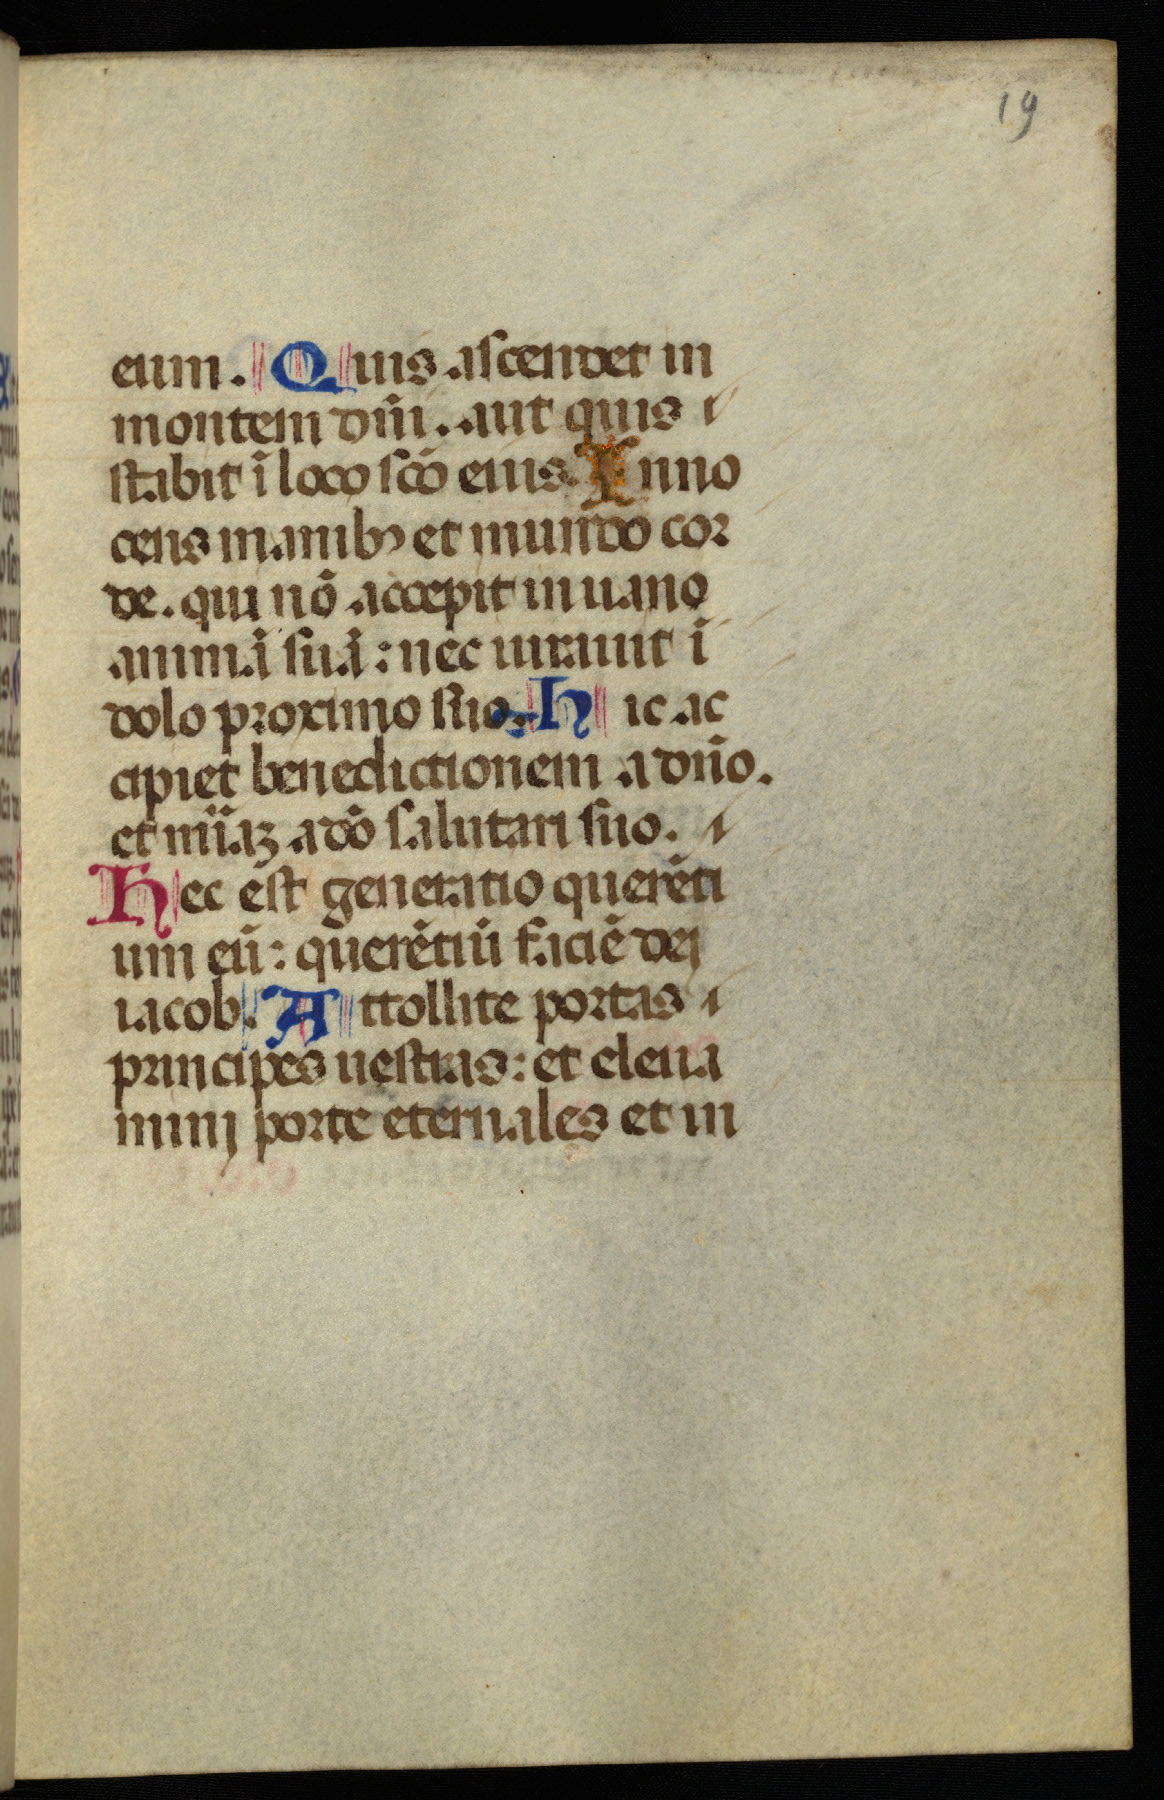 19
eum. Quis ascendet in
montem dñi. aut quis
stabit ī loco scō eius. Inno
cens manibꝫ et mundo cor
de. qui nō accepit in uano
animā suā: nec iurauit ī
dolo proximo suo. Hic ac
cipiet benedictionem a dño.
et mīaꝫ a dō salutari suo.
Hec est generatio querēti
um eū: querētiū faciē dei
iacob. Attollite portas
principes uestras: et eleua
minj porte eternales et in